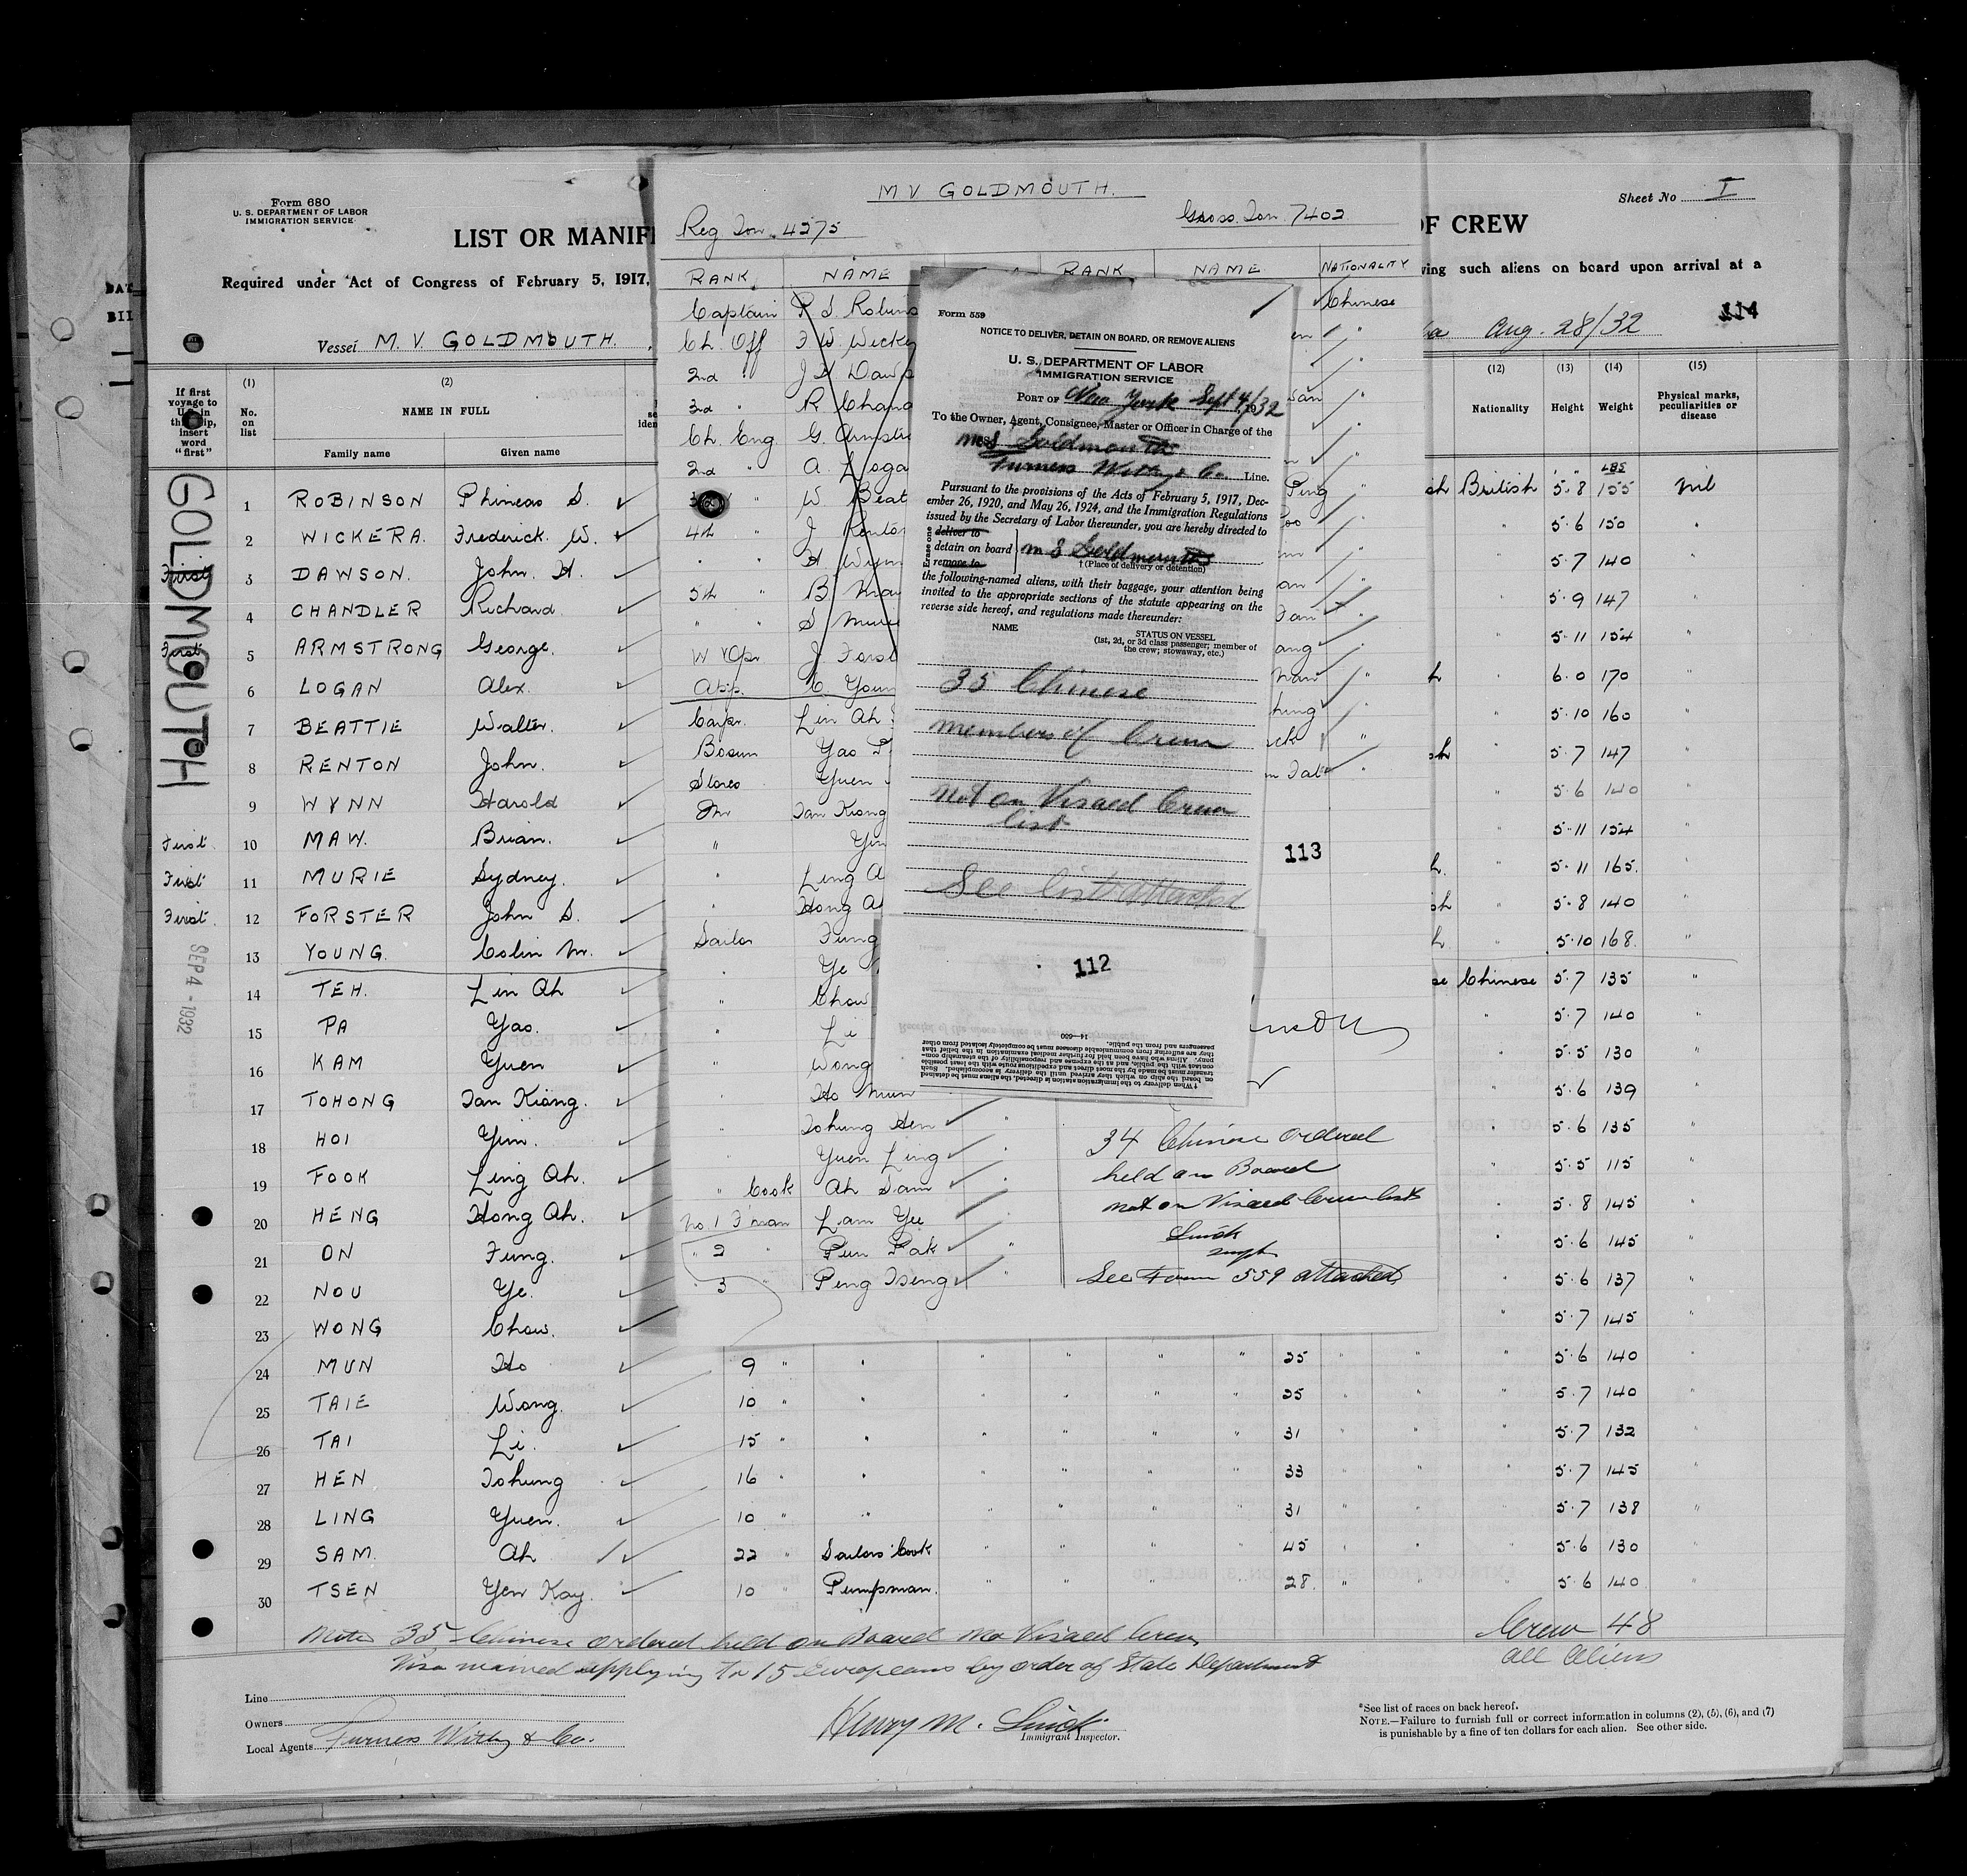 Form 680
U. S. DEPARTMENT OF LABOR
IMMIGRATION SERVICE
Sheet No I
LIST OR MANIF
OF CREW
Required under Act of Congress of February 5, 1917,
ving such aliens on board upon arrival at a
114
Vessel M. V. GOLDMOUTH.
Aug. 28/32
If first voyage to U.S. in this ship, insert word "first"
(1) No. on list
(2) NAME IN FULL
Family name Given name
(12) Nationality
(13) Height
(14) Weight
(15) Physical marks, peculiarities or disease
GOLDMOUTH
SEP 4 - 1932
1 ROBINSON Phineas S. British 5.8 155 Nil
2 WICKERA. Frederick. W. " 5.6 150 "
First 3 DAWSON. John. H. " 5.7 140 "
4 CHANDLER Richard. " 5.9 147 "
First 5 ARMSTRONG George. " 5.11 154 "
6 LOGAN Alex. " 6.0 170 "
7 BEATTIE Walter. " 5.10 160 "
8 RENTON John. " 5.7 147 "
9 WYNN Harold " 5.6 140 "
First 10 MAW. Brian. " 5.11 154 "
First 11 MURIE Sydney. " 5.11 165. "
First 12 FORSTER John S. " 5.8 140 "
13 YOUNG. Colin M. " 5.10 168. "
14 TEH. Lin Ah Chinese 5.7 135 "
15 PA Yao. " 5.7 140 "
16 KAM Yuen " 5.5 130 "
17 TOHONG Tan Kiang. " 5.6 139 "
18 HOI Yim. " 5.6 135 "
19 FOOK Ling Ah. " 5.5 115 "
20 HENG Hong Ah. " 5.8 145 "
21 ON Fung. " 5.6 145 "
22 NOU Ye. " 5.6 137 "
23 WONG Chow. " 5.7 145 "
24 MUN Ho 9 " " " " " " 25 " " " 5.6 140 "
25 TAIE Wong. 10 " " " " " " 25 " " " 5.7 140 "
26 TAI Li. 15 " " " " " " 31 " " " 5.7 132 "
27 HEN Tohung 16 " " " " " " 33 " " " 5.7 145 "
28 LING Yuen. 10 " " " " " " 31 " " " 5.7 138 "
29 SAM. Ah 22 " Sailors' Cook " " " " 45 " " " 5.6 130 "
30 TSEN Yew Kay. 10 " Pumpman. " " " " 28. " " " 5.6 140 "
Note 35 Chinese ordered held on Board no Visaed Crew
Visa waived applying to 15 Europeans by order of State Department
Crew 48
all Aliens
Line
Owners
Local Agents Furness Withy & Co.
Henry M.
Immigrant Inspector.
*See list of races on back hereof.
NOTE.—Failure to furnish full or correct information in columns (2), (5), (6), and (7)
is punishable by a fine of ten dollars for each alien. See other side.
M V. GOLDMOUTH.
Reg Ton. 4275
Gross. Ton. 7402
RANK NAME RANK NAME NATIONALITY
Captain P S Robins
Chinese
Ch. Off F W. Wicke
2nd " J H Daws
3rd " R Chand
Ch. Eng G. Armstr
2nd " A. Loga
W Beat
Ping
4th " J Renton
" H Wynn
5th " B Maw
" " S Murie
J Forst
C Youn
Carpr. Lin Ah
Bosun Yao P
Stores Yuen
Tan Kiong
" Yim
" Ling A
" Hong Ah
Sailor Fung
" Ye
" Chow
" Li
" Wong
" Ho Mun
" Tohung Hen
" Yuen Ling
" Cook Ah Sam
No 1 F'man Lam Yee
" 2 " Pun Pak
3 " Peng Tseng
113
34 Chinese ordered
held on Board
not on Visaed Crew list
See Form 559 attached
Form 559
NOTICE TO DELIVER, DETAIN ON BOARD, OR REMOVE ALIENS
U. S. DEPARTMENT OF LABOR
IMMIGRATION SERVICE
PORT OF New York Sept 4/32
To the Owner, Agent, Consignee, Master or Officer in Charge of the
MS Goldmouth
Furness Withy & Co. Line.
Pursuant to the provisions of the Acts of February 5, 1917, Dec-
ember 26, 1920, and May 26, 1924, and the Immigration Regulations
issued by the Secretary of Labor thereunder, you are hereby directed to
deliver to
detain on board
remove to
M S Goldmouth
†(Place of delivery or detention)
the following-named aliens, with their baggage, your attention being
invited to the appropriate sections of the statute appearing on the
reverse side hereof, and regulations made thereunder:
NAME
STATUS ON VESSEL
(1st, 2d, or 3d class passenger; member of
the crew; stowaway, etc.)
35 Chinese
members of Crew
not on Visaed Crew
list
See list attached
112
14—600
†When delivery to the immigration station is directed, the aliens must be detained
on board the ship on which they arrived until the delivery is accomplished. Such
transfer must be made by the most direct and expeditious route with the least possible
contact with the public, and at the expense and responsibility of the steamship com-
pany. Aliens who have been held for further medical examination in the belief that
they are suffering from communicable diseases must be completely isolated from other
passengers and from the public.